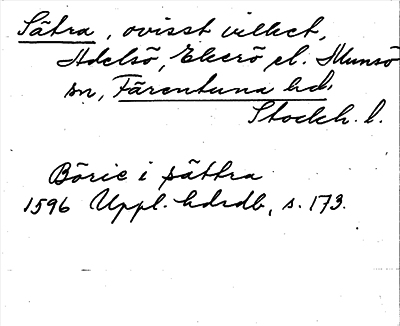 Sätra, ovisst vilket,
Adelsö, Ekerö el. Munsö
sn, Färentuna hd,
Stockh. l.
Böric i sättra
1596 Uppl. hdrdb, s. 173.